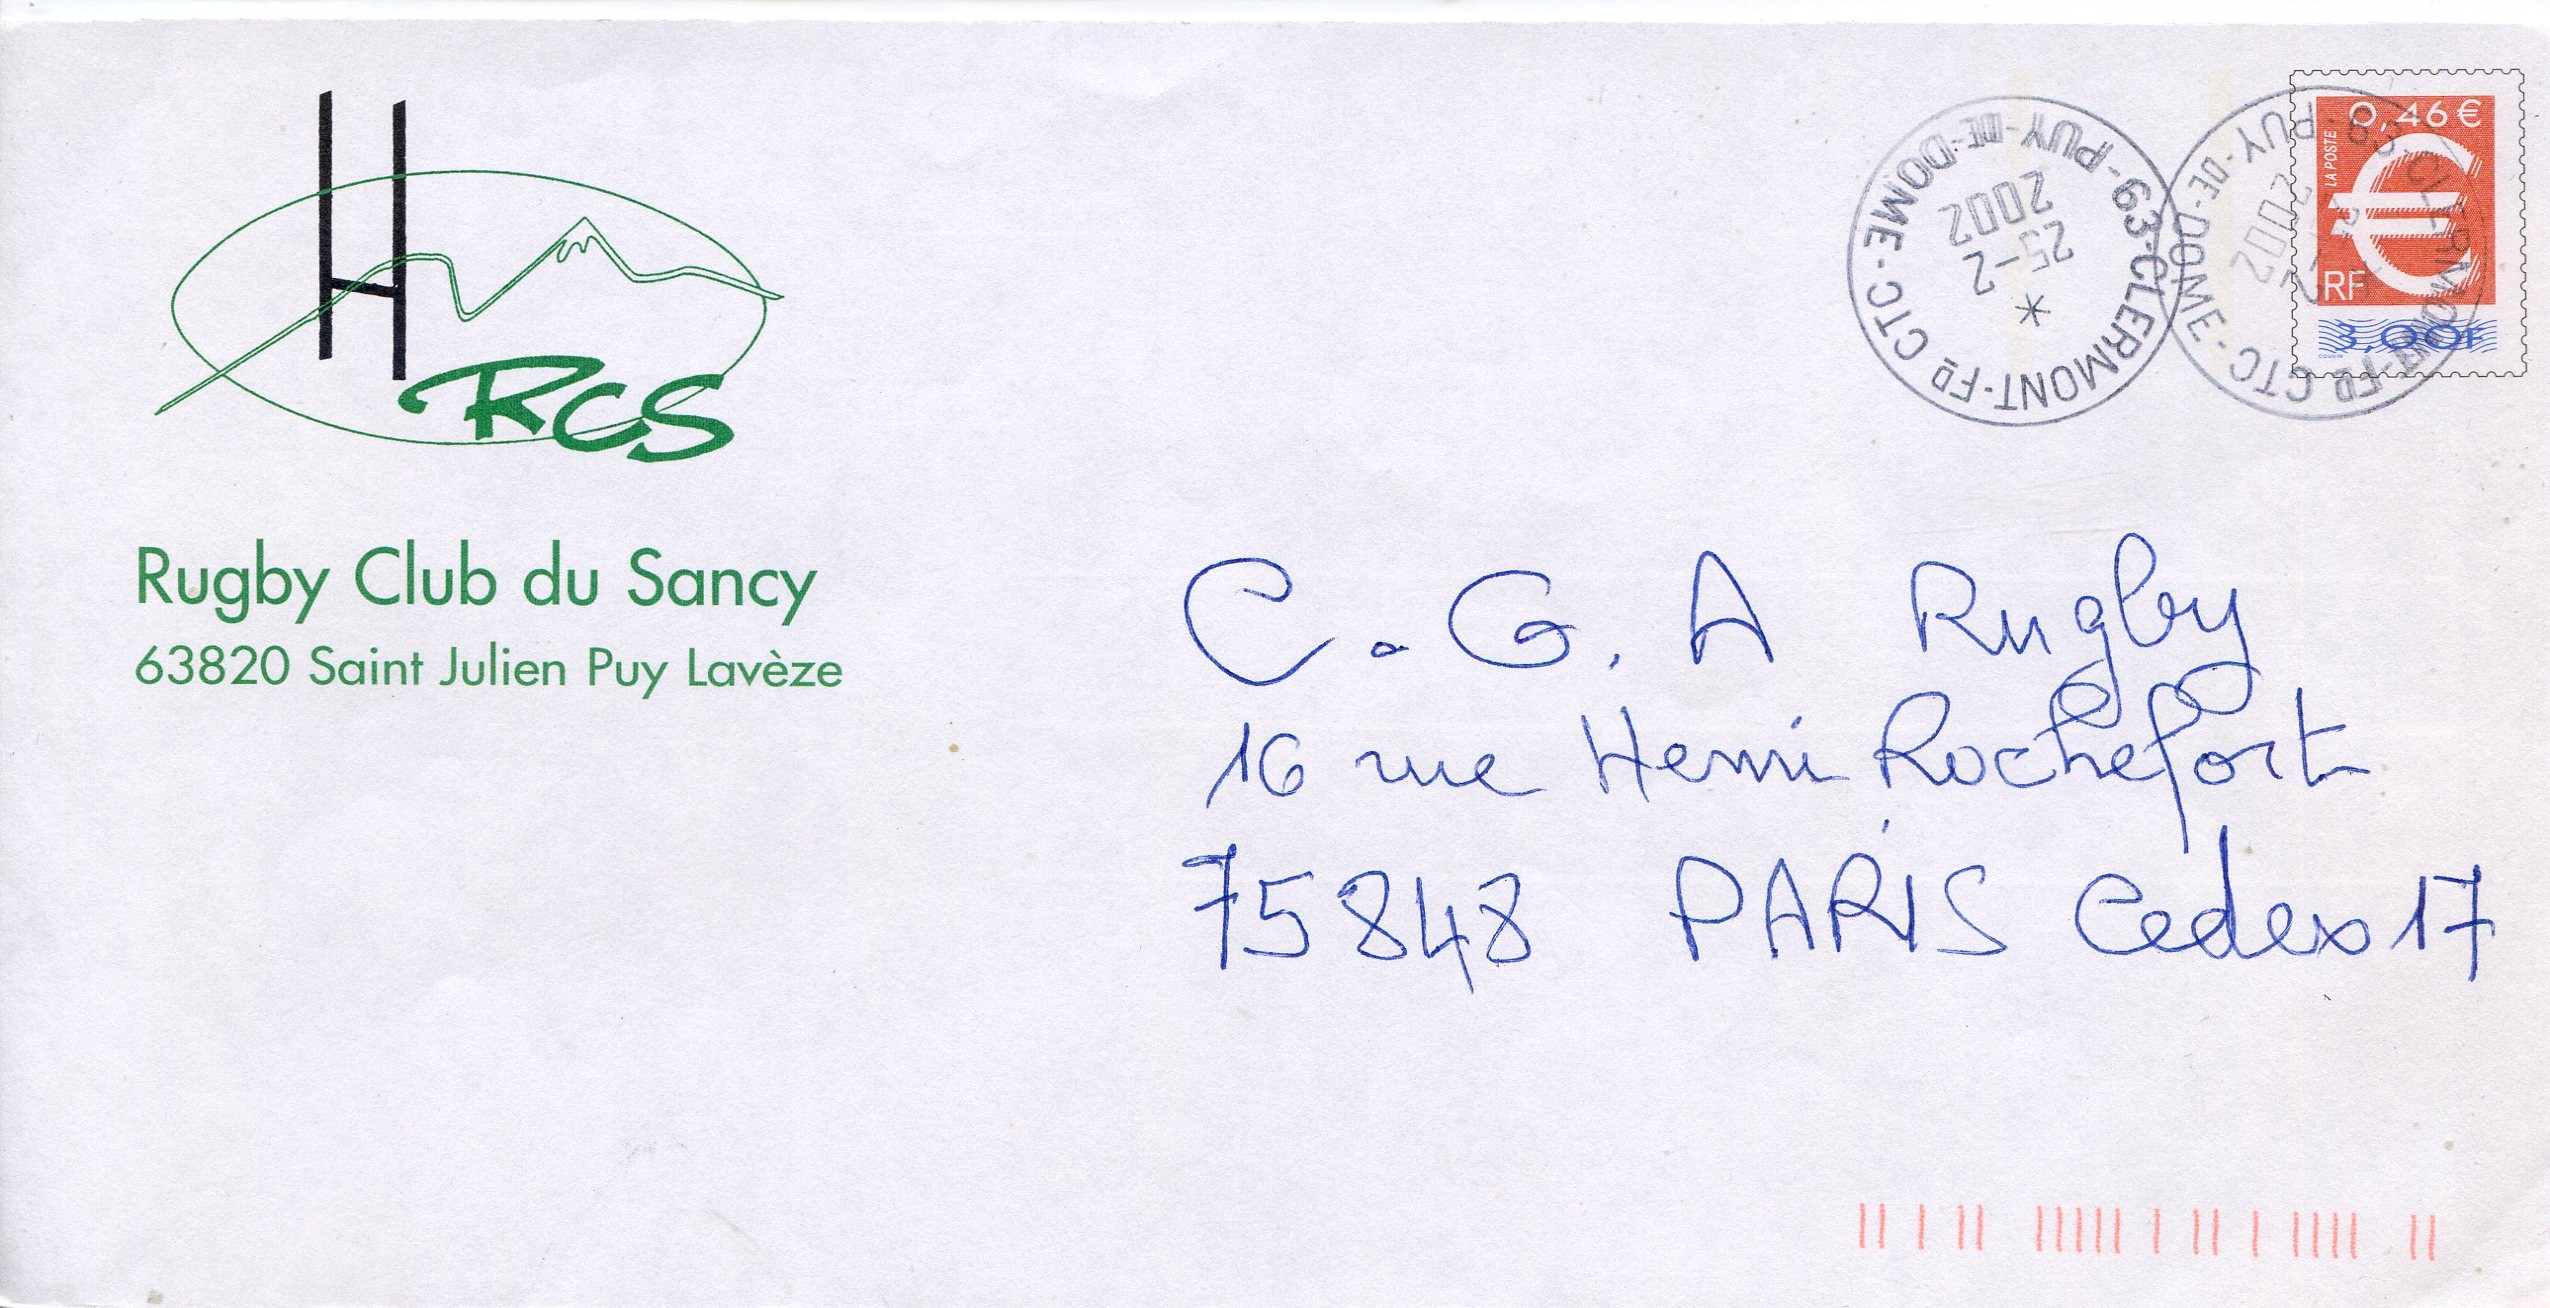 RCS
Rugby Club du Sancy
63820 Saint Julien Puy Lavèze
63-CLERMONT-FD CTC-PUY-DE-DOME
25-2
2002
*
63-CLERMONT-FD CTC-PUY-DE-DOME
2002
0,46€
LA POSTE
RF
3,00F
COUSIN
C.G.A Rugby
16 rue Henri Rochefort
75848 PARIS Cedex 17